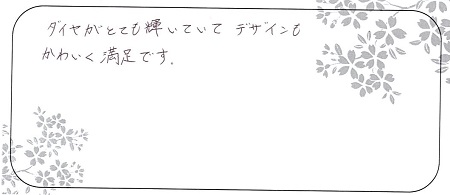 ダイヤがとても輝いていて デザインも
かわいく満足です.